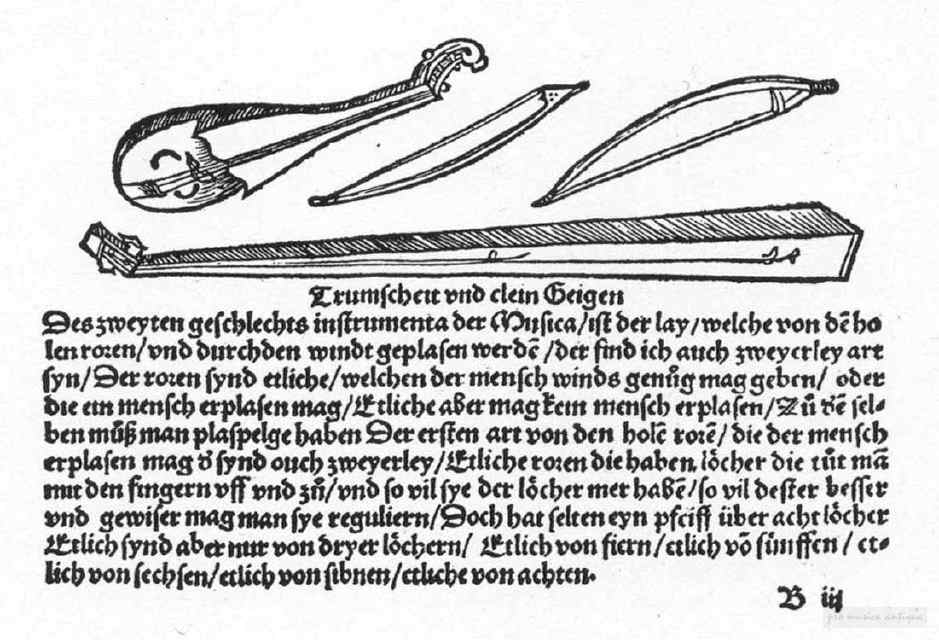 Trumscheit vnd clein Geigen
Des zweyten geschlechts instrumenta der Musica/ist der lay/welche von dē ho
len roren/vnd durch den windt geplasen werdē/der find ich auch zweyerley art
syn/Der roren synd etliche/welchen der mensch winds genůg mag geben/ oder
die ein mensch erplasen mag/Etliche aber mag kein mensch erplasen/Zů dē sel-
ben můß man plaspelge haben Der ersten art von den holē rorē/die der mensch
erplasen mag synd ouch zweyerley/Etliche roren die haben löcher die tůt mā
mit den fingern vff vnd zů/vnd so vil sye der löcher mer habē/so vil dester besser
vnd gewiser mag man sye reguliern/Doch hat selten eyn pfeiff über acht löcher
Etlich synd aber nur von dryer löchern/ Etlich von fiern/etlich vō fünffen / et-
lich von sechsen/etlich von sibnen/etliche von achten.
B iij
pro musica antiqua